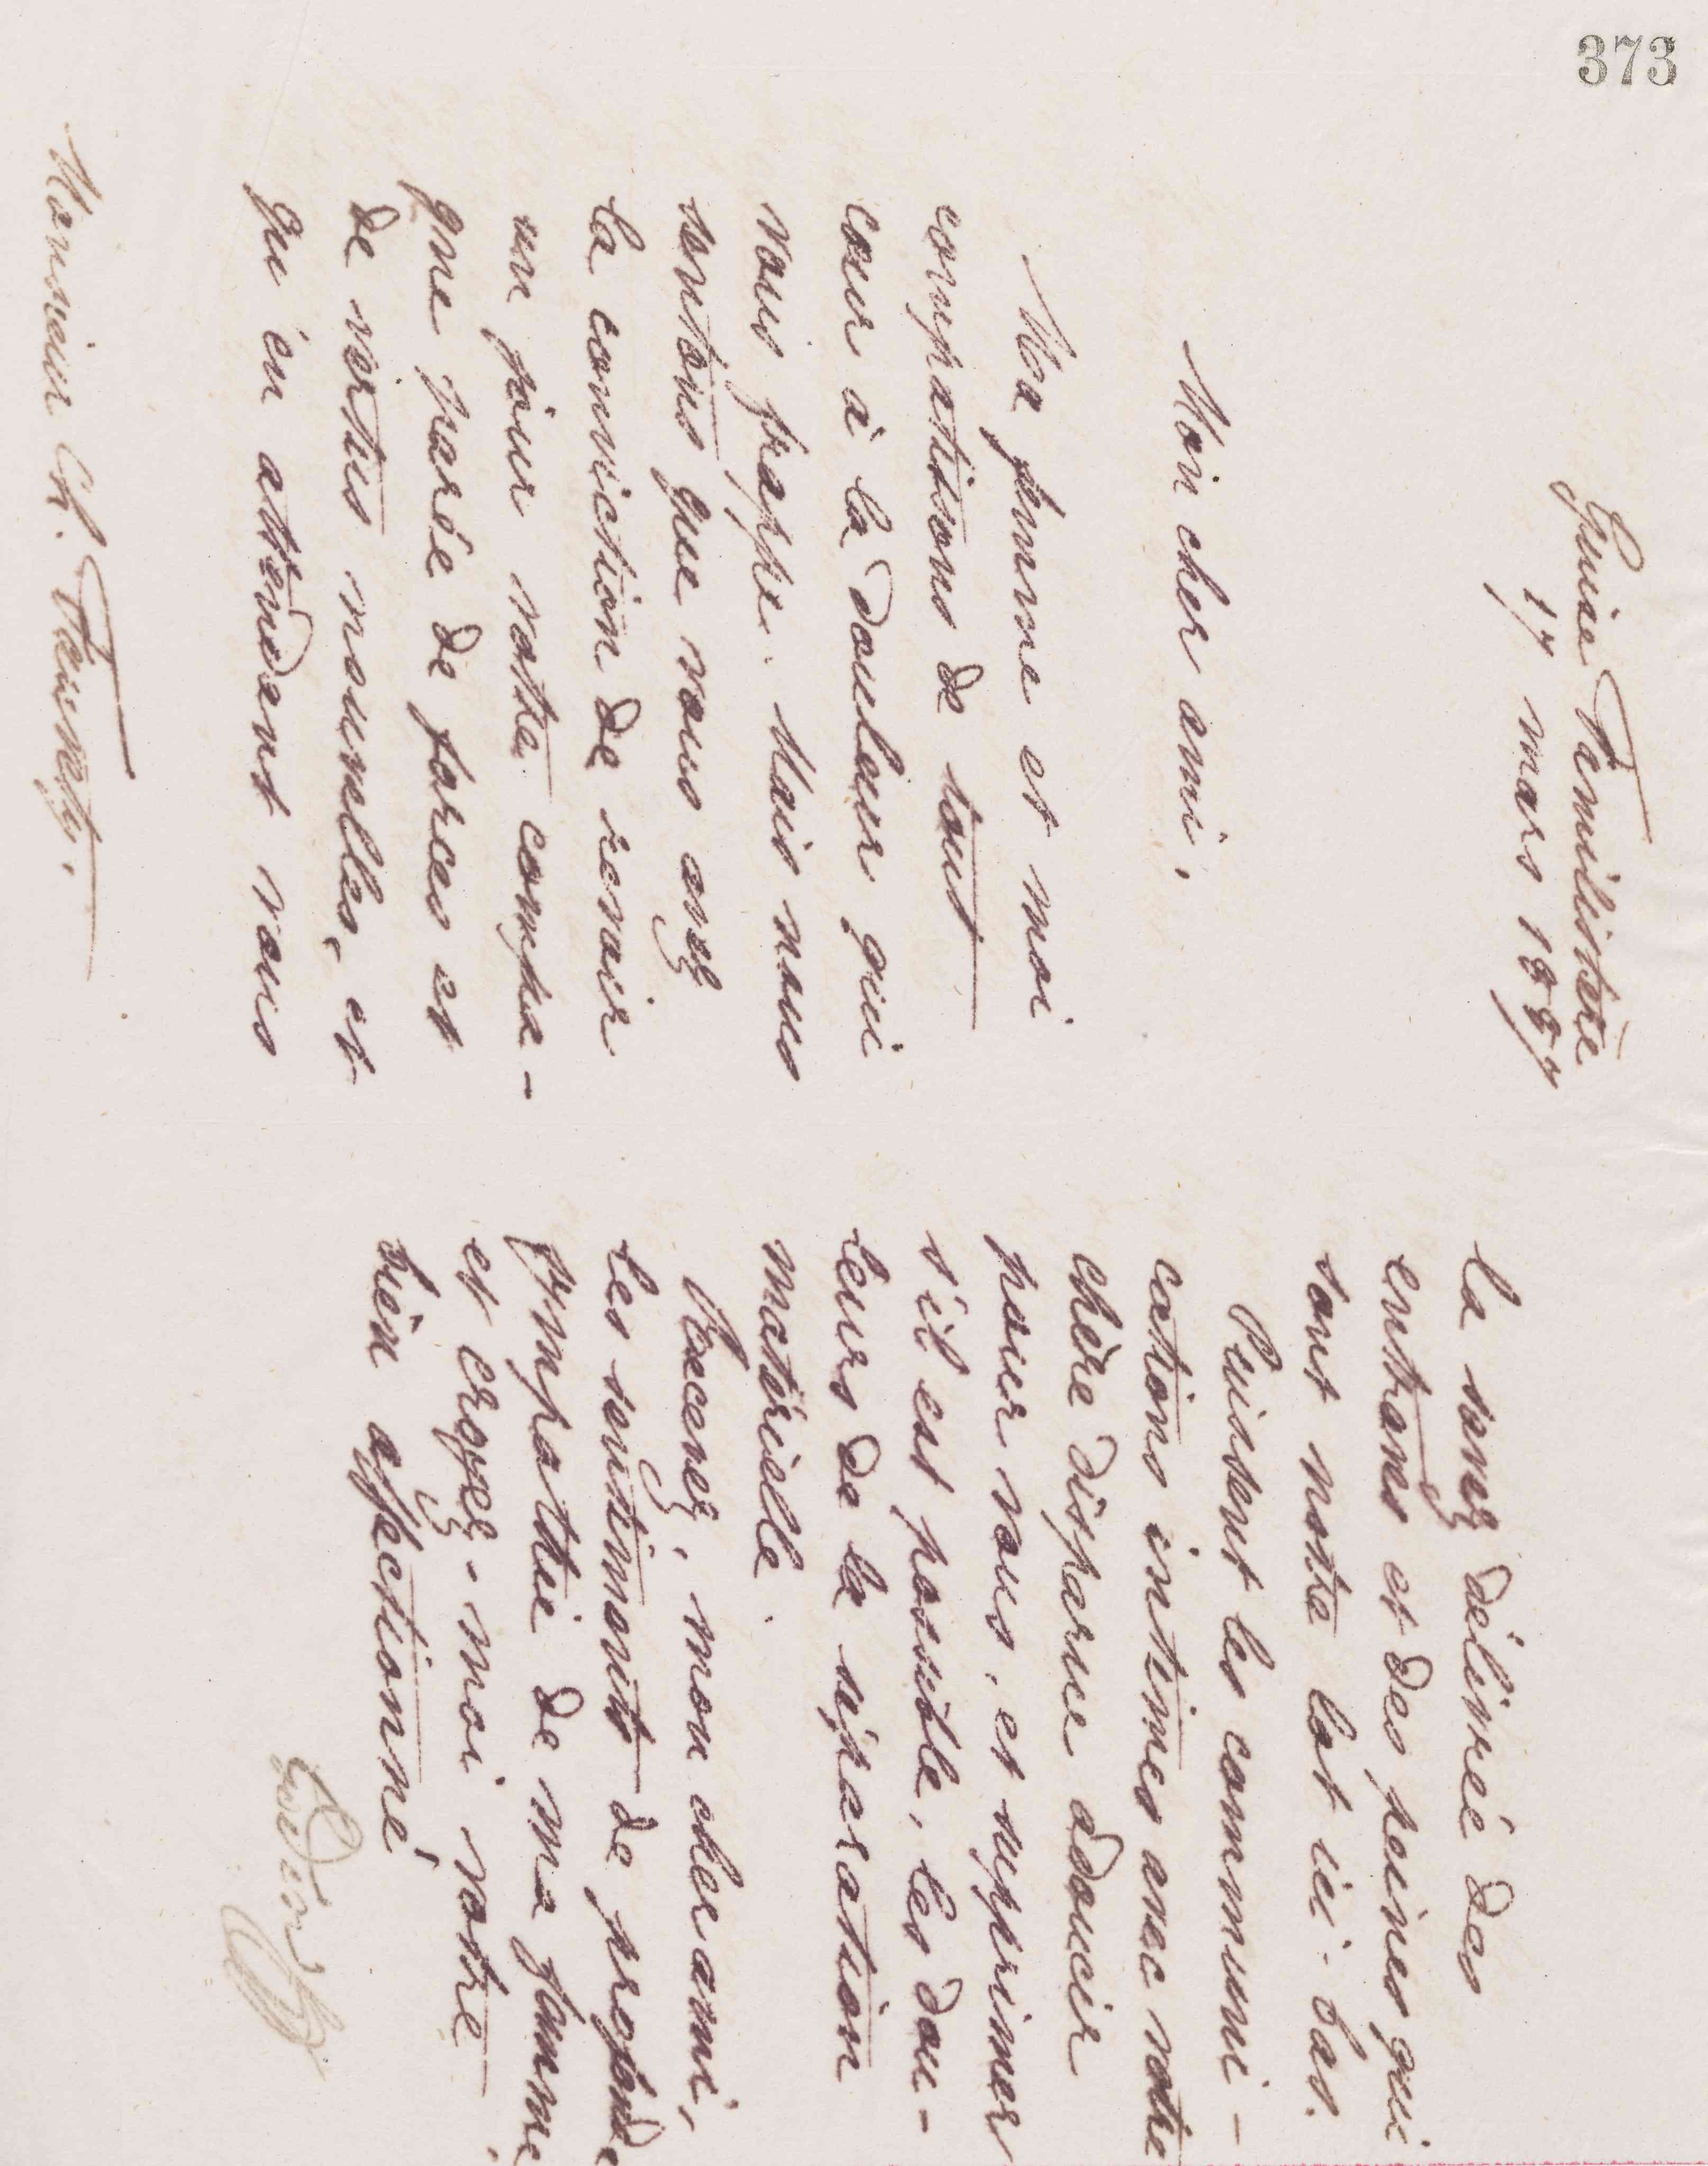 373
Guise Familistère
17 mars 1887
Mon cher ami,
Ma femme et moi
compatissons de tout
cœur à la douleur qui
vous frappe. Mais nous
sentons que vous avez
la conviction de revoir
un jour votre compa-
gne parée de forces et
de vertus nouvelles, et
qu'en attendant vous
Monsieur Ch. Fauvety.
la savez délivrée des
entraves et des peines qui
sont notre lot ici-bas.
Puissent les communi-
cations intimes avec votre
chère disparue adoucir
pour vous, et supprimer
s'il est possible, les dou-
leurs de la séparation
matérielle.
Recevez, mon cher ami,
les sentiments de profonde
sympathie de ma femme,
et croyez-moi votre
bien affectionné
Godin